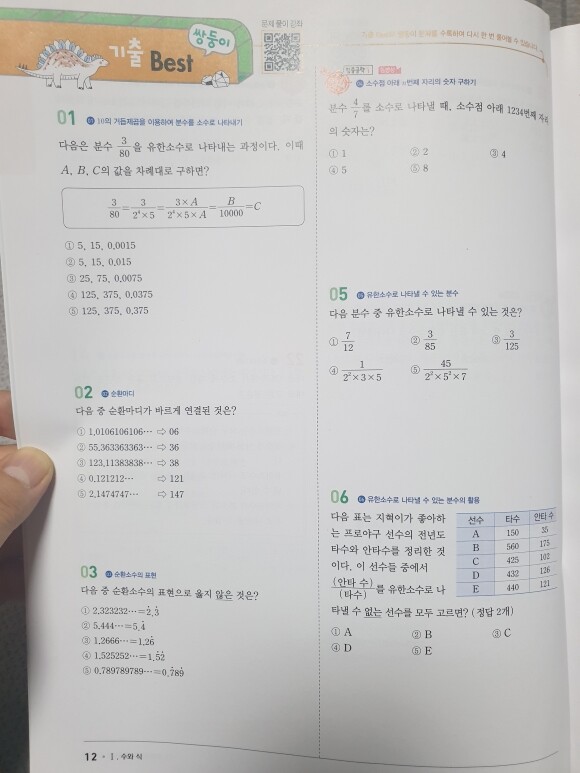 기출 Best 쌍둥이
문제 풀이 강좌
01 10의 거듭제곱을 이용하여 분수를 소수로 나타내기
다음은 분수 3/80을 유한소수로 나타내는 과정이다. 이때
A, B, C의 값을 차례대로 구하면?
3/80 = 3/(2⁴×5) = (3×A)/(2⁴×5×A) = B/10000 = C
① 5, 15, 0.0015
② 5, 15, 0.015
③ 25, 75, 0.0075
④ 125, 375, 0.0375
⑤ 125, 375, 0.375
02 순환마디
다음 중 순환마디가 바르게 연결된 것은?
① 1.0106106106⋯ ⇨ 06
② 55.363363363⋯ ⇨ 36
③ 123.11383838⋯ ⇨ 38
④ 0.121212⋯ ⇨ 121
⑤ 2.1474747⋯ ⇨ 147
03 순환소수의 표현
다음 중 순환소수의 표현으로 옳지 않은 것은?
① 2.323232⋯=2̇.3̇
② 5.444⋯=5.4̇
③ 1.2666⋯=1.26̇
④ 1.525252⋯=1.5̇2̇
⑤ 0.789789789⋯=0.7̇89̇
12 • Ⅰ. 수와 식
소수점 아래 n번째 자리의 숫자 구하기
분수 4/7를 소수로 나타낼 때, 소수점 아래 1234번째 자리
의 숫자는?
① 1 ② 2 ③ 4
④ 5 ⑤ 8
05 유한소수로 나타낼 수 있는 분수
다음 분수 중 유한소수로 나타낼 수 있는 것은?
① 7/12 ② 3/85 ③ 3/125
④ 1/(2²×3×5) ⑤ 45/(2²×5²×7)
06 유한소수로 나타낼 수 있는 분수의 활용
다음 표는 지혁이가 좋아하
는 프로야구 선수의 전년도
타수와 안타수를 정리한 것
이다. 이 선수들 중에서
(안타 수)/(타수)를 유한소수로 나
타낼 수 없는 선수를 모두 고르면? (정답 2개)
선수 타수 안타 수
A 150 35
B 560 175
C 425 102
D 432 126
E 440 121
① A ② B ③ C
④ D ⑤ E